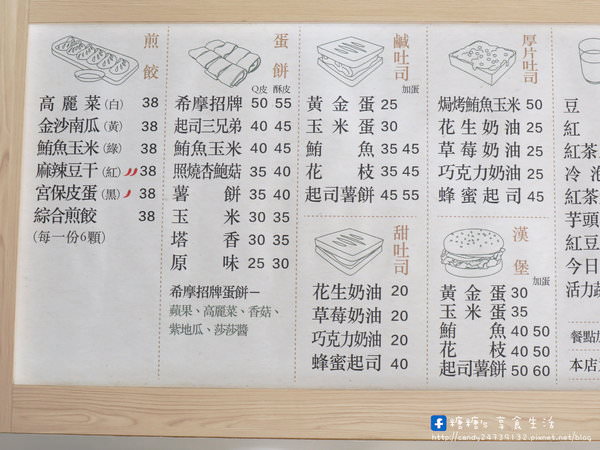 煎餃
高麗菜(白) 38
金沙南瓜(黃) 38
鮪魚玉米(綠) 38
麻辣豆干(紅) 38
宮保皮蛋(黑) 38
綜合煎餃 38
(每一份6顆)
蛋餅
Q皮 酥皮
希摩招牌 50 55
起司三兄弟 40 45
鮪魚玉米 40 45
照燒杏鮑菇 35 40
薯餅 35 40
玉米 30 35
塔香 30 35
原味 25 30
希摩招牌蛋餅－
蘋果、高麗菜、香菇、
紫地瓜、莎莎醬
鹹吐司
加蛋
黃金蛋 25
玉米蛋 30
鮪魚 35 45
花枝 35 45
起司薯餅 45 55
甜吐司
花生奶油 20
草莓奶油 20
巧克力奶油 20
蜂蜜起司 40
厚片吐司
焗烤鮪魚玉米 50
花生奶油 25
草莓奶油 25
巧克力奶油 25
蜂蜜起司 45
漢堡
加蛋
黃金蛋 30
玉米蛋 35
鮪魚 40 50
花枝 40 50
起司薯餅 50 60
豆
紅
紅茶
冷泡
紅茶
芋頭
紅豆
今日
活力蔬
餐點加
本店
糖糖's 享食生活
http://candy24739132.pixnet.net/blog